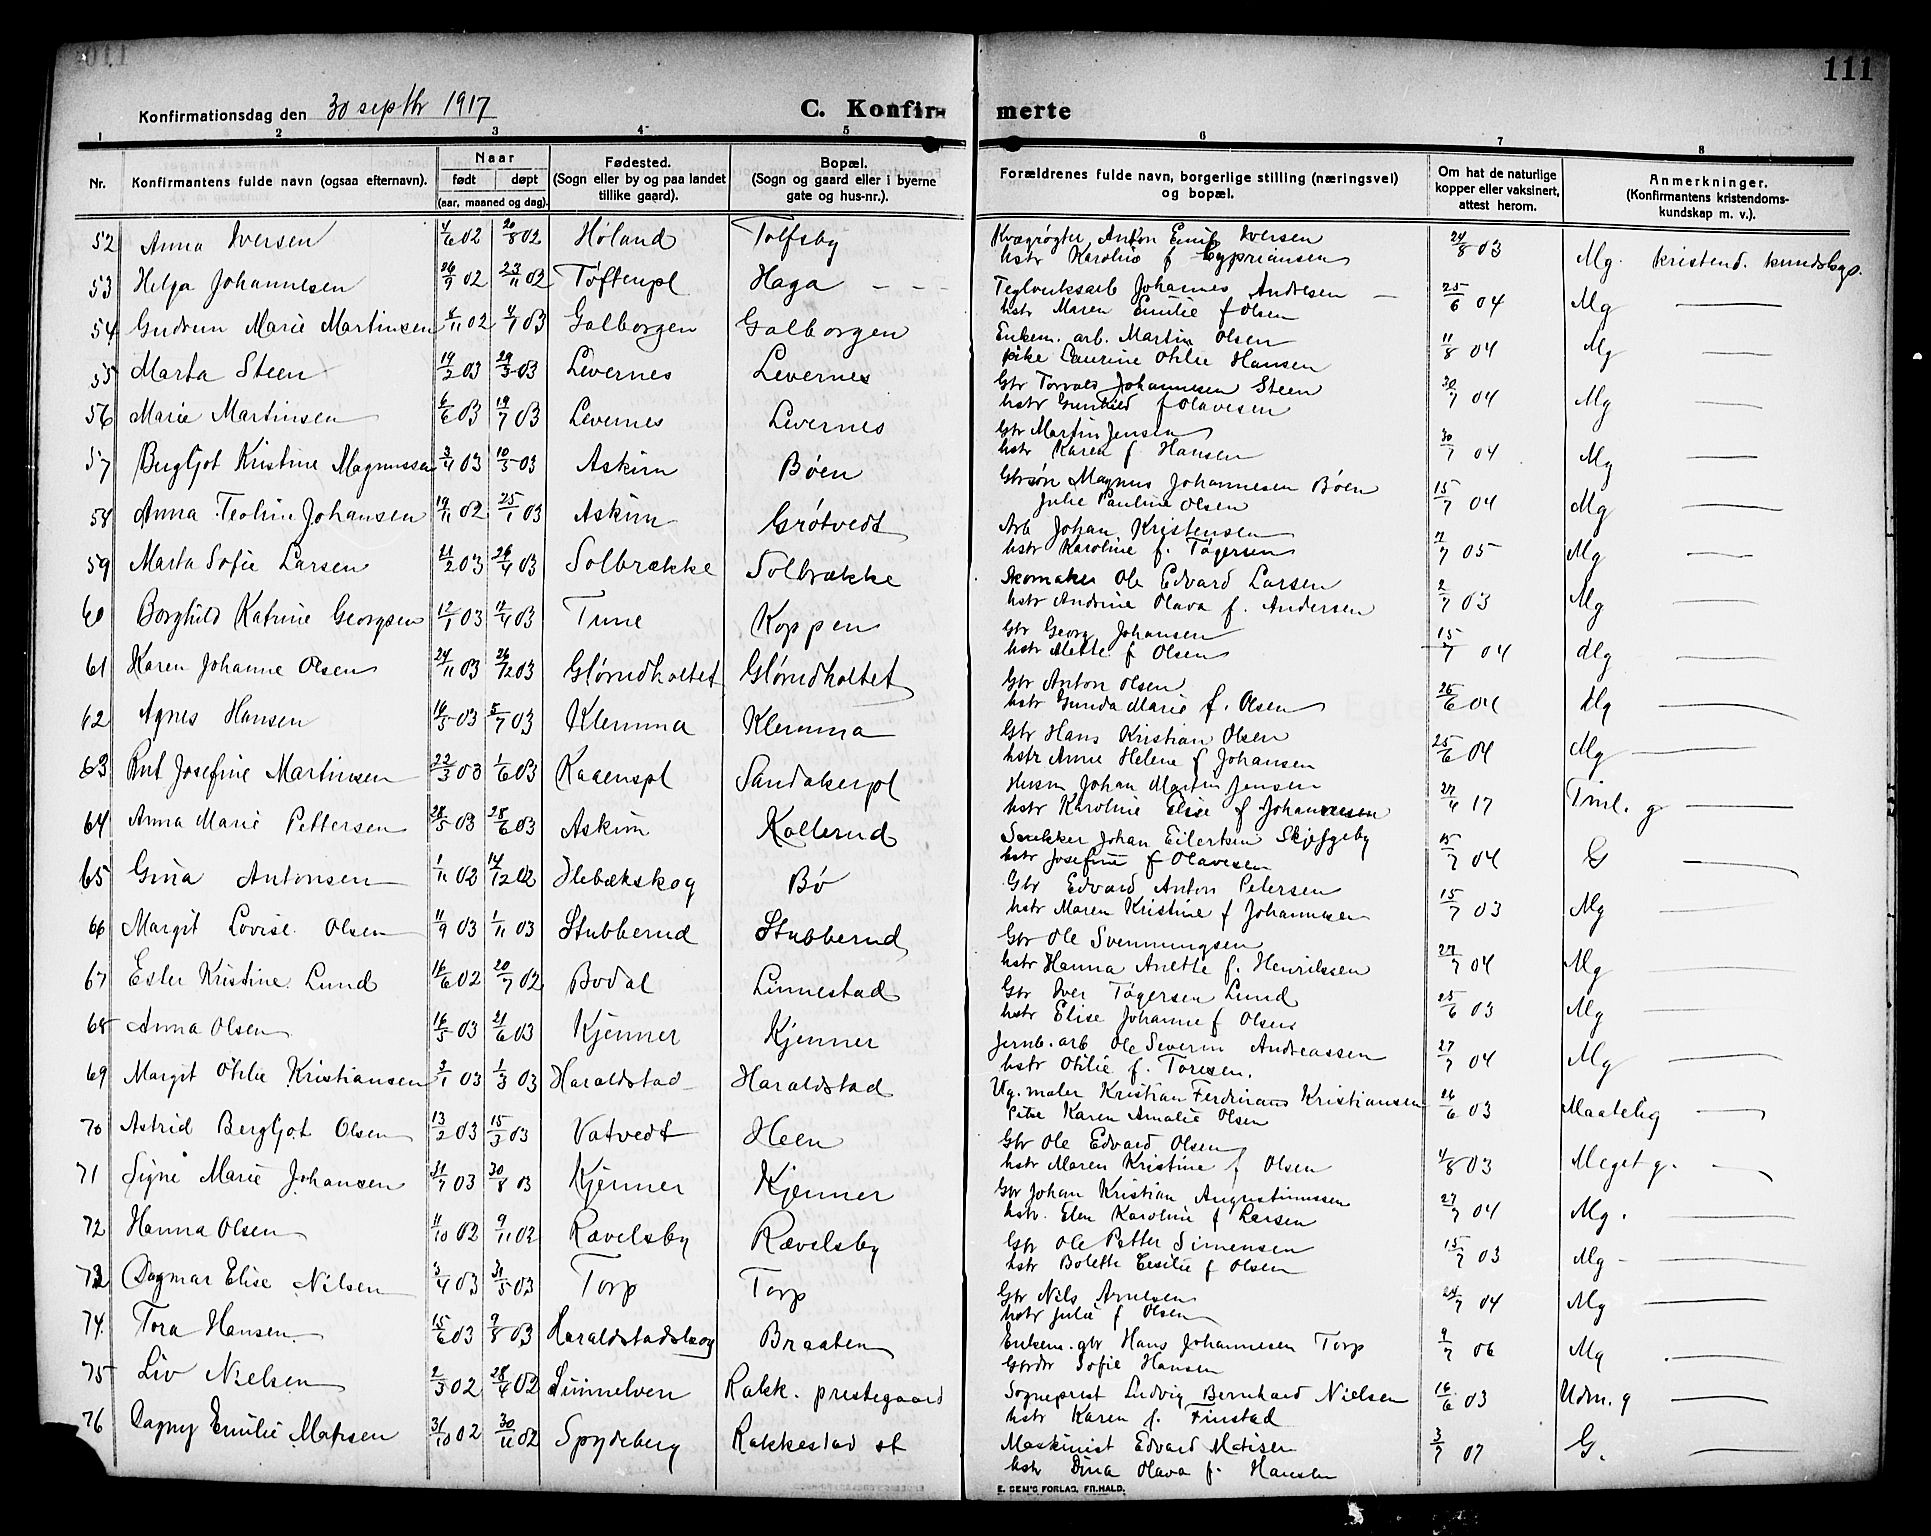 111
Konfirmationsdag den 30 septbr 1917
C. Konfir- merte
1 2 3 4 5 6 7 8
Nr. Konfirmantens fulde navn (ogsaa efternavn). Naar født døpt (aar, maaned og dag). Fødested. (Sogn eller by og paa landet tillike gaard). Bopæl. (Sogn og gaard eller i byerne gate og hus-nr.). Forældrenes fulde navn, borgerlige stilling (næringsvei) og bopæl. Om hat de naturlige kopper eller vaksinert, attest herom. Anmerkninger. (Konfirmantens kristendoms-kundskap m. v.).
52 Anna Iversen 4/6 02 20/8 02 Høland Tolfsby Kvægrøgter Anton Emil Iversen 24/8 03 Mg. kristend. kundskap.
hstr Karoline f Cypriansen
53 Helga Johannesen 26/9 02 23/11 02 Tøftenpl Haga Teglverksarb Johannes Andresen 25/6 04 Mg
hstr Maren Emilie f Olsen
54 Gudrun Marie Martinsen 4/11 02 4/1 03 Galborgen Galborgen Enkem. arb. Martin Olsen 11/8 04 Mg
pike Laurine Otilie Hansen
55 Marta Steen 19/2 03 29/3 03 Levernes Levernes Gbr Torvald Johannesen Steen 30/7 04 Mg
hstr Gunhild f Olavesen
56 Marie Martinsen 6/6 03 19/7 03 Levernes Levernes Gbr Martin Jensen 30/7 04 Mg
hstr Karen f. Hansen
57 Bergljot Kristine Magnussen 3/4 03 10/5 03 Askim Bøen Gbrsøn Magnus Johannesen Bøen 15/7 04 Mg
Julie Pauline Olsen
58 Anna Teoline Johansen 19/11 02 25/1 03 Askim Grøtvedt Arb Johan Kristensen 7/7 05 Mg
hstr Karoline f. Tøgersen
59 Marta Sofie Larsen 21/2 03 26/4 03 Solbrække Solbrække Skomaker Ole Edvard Larsen 2/7 03 Mg
hstr Andrine Olava f. Andersen
60 Borghild Katrine Georgsen 17/1 03 7/4 03 Tune Koppen Gbr Georg Johansen 15/7 04 Mg
hstr Mette f Olsen
61 Karen Johanne Olsen 24/11 03 26/12 03 Glørudholtet Glørudholtet Gbr Anton Olsen 26/6 04 Mg
hstr Gunda Marie f. Olsen
62 Agnes Hansen 16/5 03 5/7 03 Klemma Klemma Gbr Hans Kristian Olsen 25/6 04 Mg
hstr Anne Helene f Johansen
63 Rut Josefine Martinsen 22/3 03 1/6 03 Kaaenspl Sandakerpl Husm Johan Martin Jensen 27/4 17 g
hstr Karoline Elise f Johannesen
64 Anna Marie Pettersen 28/5 03 28/6 03 Askim Kollerud Snekker Johan Eilertsen Skjefgeby 15/7 04 G
hstr Josefine f Olavesen
65 Gina Antonsen 1/11 02 14/12 02 Hebækskog Bø Gbr Edvard Anton Petersen 15/7 03 Mg
hstr Maren Kristine f Johannesen
66 Margit Lovise Olsen 11/9 03 1/11 03 Stubberud Stubberud Gbr Ole Svenningsen 27/7 04 Mg
hstr Hanna Anette f. Henrikssen
67 Ester Kristine Lund 16/6 02 20/7 02 Bodal Linnestad Gbr Iver Tøgersen Lund 25/6 03 Mg
hstr Elise Johanne f Olsen
68 Anna Olsen 16/5 03 21/6 03 Kjenner Kjenner Jernb. arb Ole Severin Andreassen 27/7 04 Mg
hstr Otilie f. Toresen.
69 Margit Otilie Kristiansen 3/1 03 1/3 03 Haraldstad Haraldstad Ug. maler Kristian Ferdinand Kristiansen 16/6 03 Maatelig
Pike Karen Amalie Olsen
70 Astrid Bergljot Olsen 13/2 03 15/3 03 Vatvedt Heen Gbr Ole Edvard Olsen 4/8 03 Meget g.
hstr Maren Kristine f Olsen
71 Signe Marie Johansen 31/7 03 30/8 03 Kjenner Kjenner Gbr Johan Kristian Augustinussen 27/7 04 Mg.
hstr. Elen Karoline f Larsen
72 Hanna Olsen 11/10 02 9/11 02 Rævelsby Rævelsby Gbr Ole Petter Simensen 15/7 03 Mg
hstr Bolette Cecilie f Olsen
73 Dagmar Elise Nilsen 3/4 03 31/5 03 Torp Torp Gbr Nils Arnesen 24/7 04 Mg
hstr Julie f Olsen
74. Tora Hansen 15/6 03 9/8 03 Haraldstadskog Braaten Enkem. gbr Hans Johannesen Torp 9/7 06 Mg
Gbrdr Sofie Hansen
75 Liv Nielsen 2/3 02 28/4 02 Linnelven Rakk. prestegaard Sogneprest Ludvig Bernhard Nielsen 16/6 03 Udm. g
hstr Karen f. Finstad
76 Dagny Emilie Matisen 31/10 02 30/11 02 Spydeberg Rakkestad st Maskinist Edvard Matisen 3/7 07 G.
hstr Dina Olava f. Hansen
E. SEM'S FORLAG, FR.HALD.